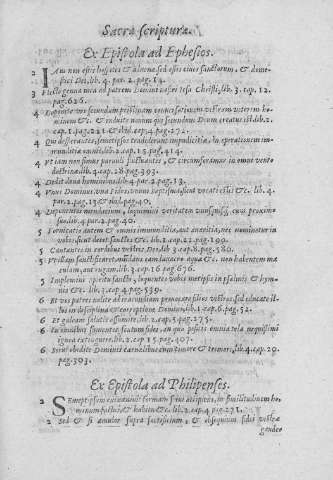 Sacra scripturæ.
Ex Epistola ad Ephesios.
2 Iam non estis hospites & aduenæ sed estis ciues sanctorum, & dome-
stici Dei, lib. 4. par. 2. pag. 14.
3 Flecto genua mea ad patrem Domini nostri Iesu Christi, lib. 3. cap. 12.
pag. 626.
4 Deponite vos secundum pristinam conuersationem veterem hominem
& induite nouum qui secundum Deum creatus est lib. 2.
cap. 1. pag. 221 & ibid. cap. 4. pag. 272.
4 Qui desperantes semetipsos tradiderunt impudicitiæ, in operationem im-
munditiæ lib. 2. cap. 15. pag. 414.
4 Vt iam non simus paruuli fluctuantes, & circumferamur in omni vento
doctrinæ lib. 4. cap. 28. pag. 393.
4 Dedit dona hominibus lib. 4. par. 2. pag. 13.
4 Vnus Dominus vna Fides, vnum Baptisma lib. 4.
par. 2. pag. 13 & pag. 40.
4 Deponentes mendacium, loquimini veritatem vnusquisque cum proxi-
mo suo lib. 4. par. 2. pag. 40.
5 Fornicatio autem & omnis immunditia, aut auaritia, nec nominetur in
vobis sicut decet sanctos &c. lib. 2. cap. 22. pag. 199.
5 Cantantes in cordibus vestris Deo lib. 3. cap. 8. pag. 580.
5 sanctificaret mundans eam lauacro aquæ &c. non habentem ma-
culam, aut rugam lib. 3. cap. 16 pag. 676.
5 Implemini spiritu sancto, loquentes vobis metipsis in psalmis & hym-
nis &c. lib. 3. cap. 4. pag. 539.
6 Et vos patres nolite ad iracundiam prouocare filios vestros sed educate il-
los in disciplina & correptione Domini lib. 1. cap. 6. pag. 52.
6 Et galeam salutis assumite lib. 2. cap. 3. pag. 275.
6 In omnibus sumentes scutum fidei, in quo possitis omnia tela nequissimi
ignea extinguere, lib. 2. cap. 15. pag. 407.
6 Serui obedite Dominis carnalibus cum timore & tremore, lib. 4. cap. 29.
pag. 393.
Ex Epistola ad Philipenses.
2 Semetipsum exinaniuit formam serui accipiens, in similitudinem ho-
minum factus, & habitu &c. lib. 2. cap. 4 pag. 271.
2 Sed & si immolor supra sacrificium, & obsequium fidei vestræ
gaudeo